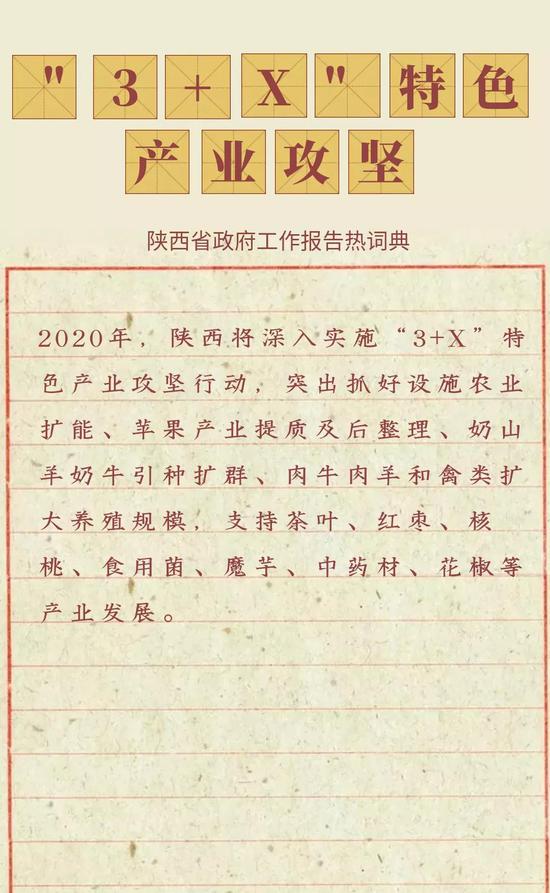 "3+X"特色
产业攻坚
陕西省政府工作报告热词典
2020年，陕西将深入实施“3+X”特
色产业攻坚行动，突出抓好设施农业
扩能、苹果产业提质及后整理、奶山
羊奶牛引种扩群、肉牛肉羊和禽类扩
大养殖规模，支持茶叶、红枣、核
桃、食用菌、魔芋、中药材、花椒等
产业发展。